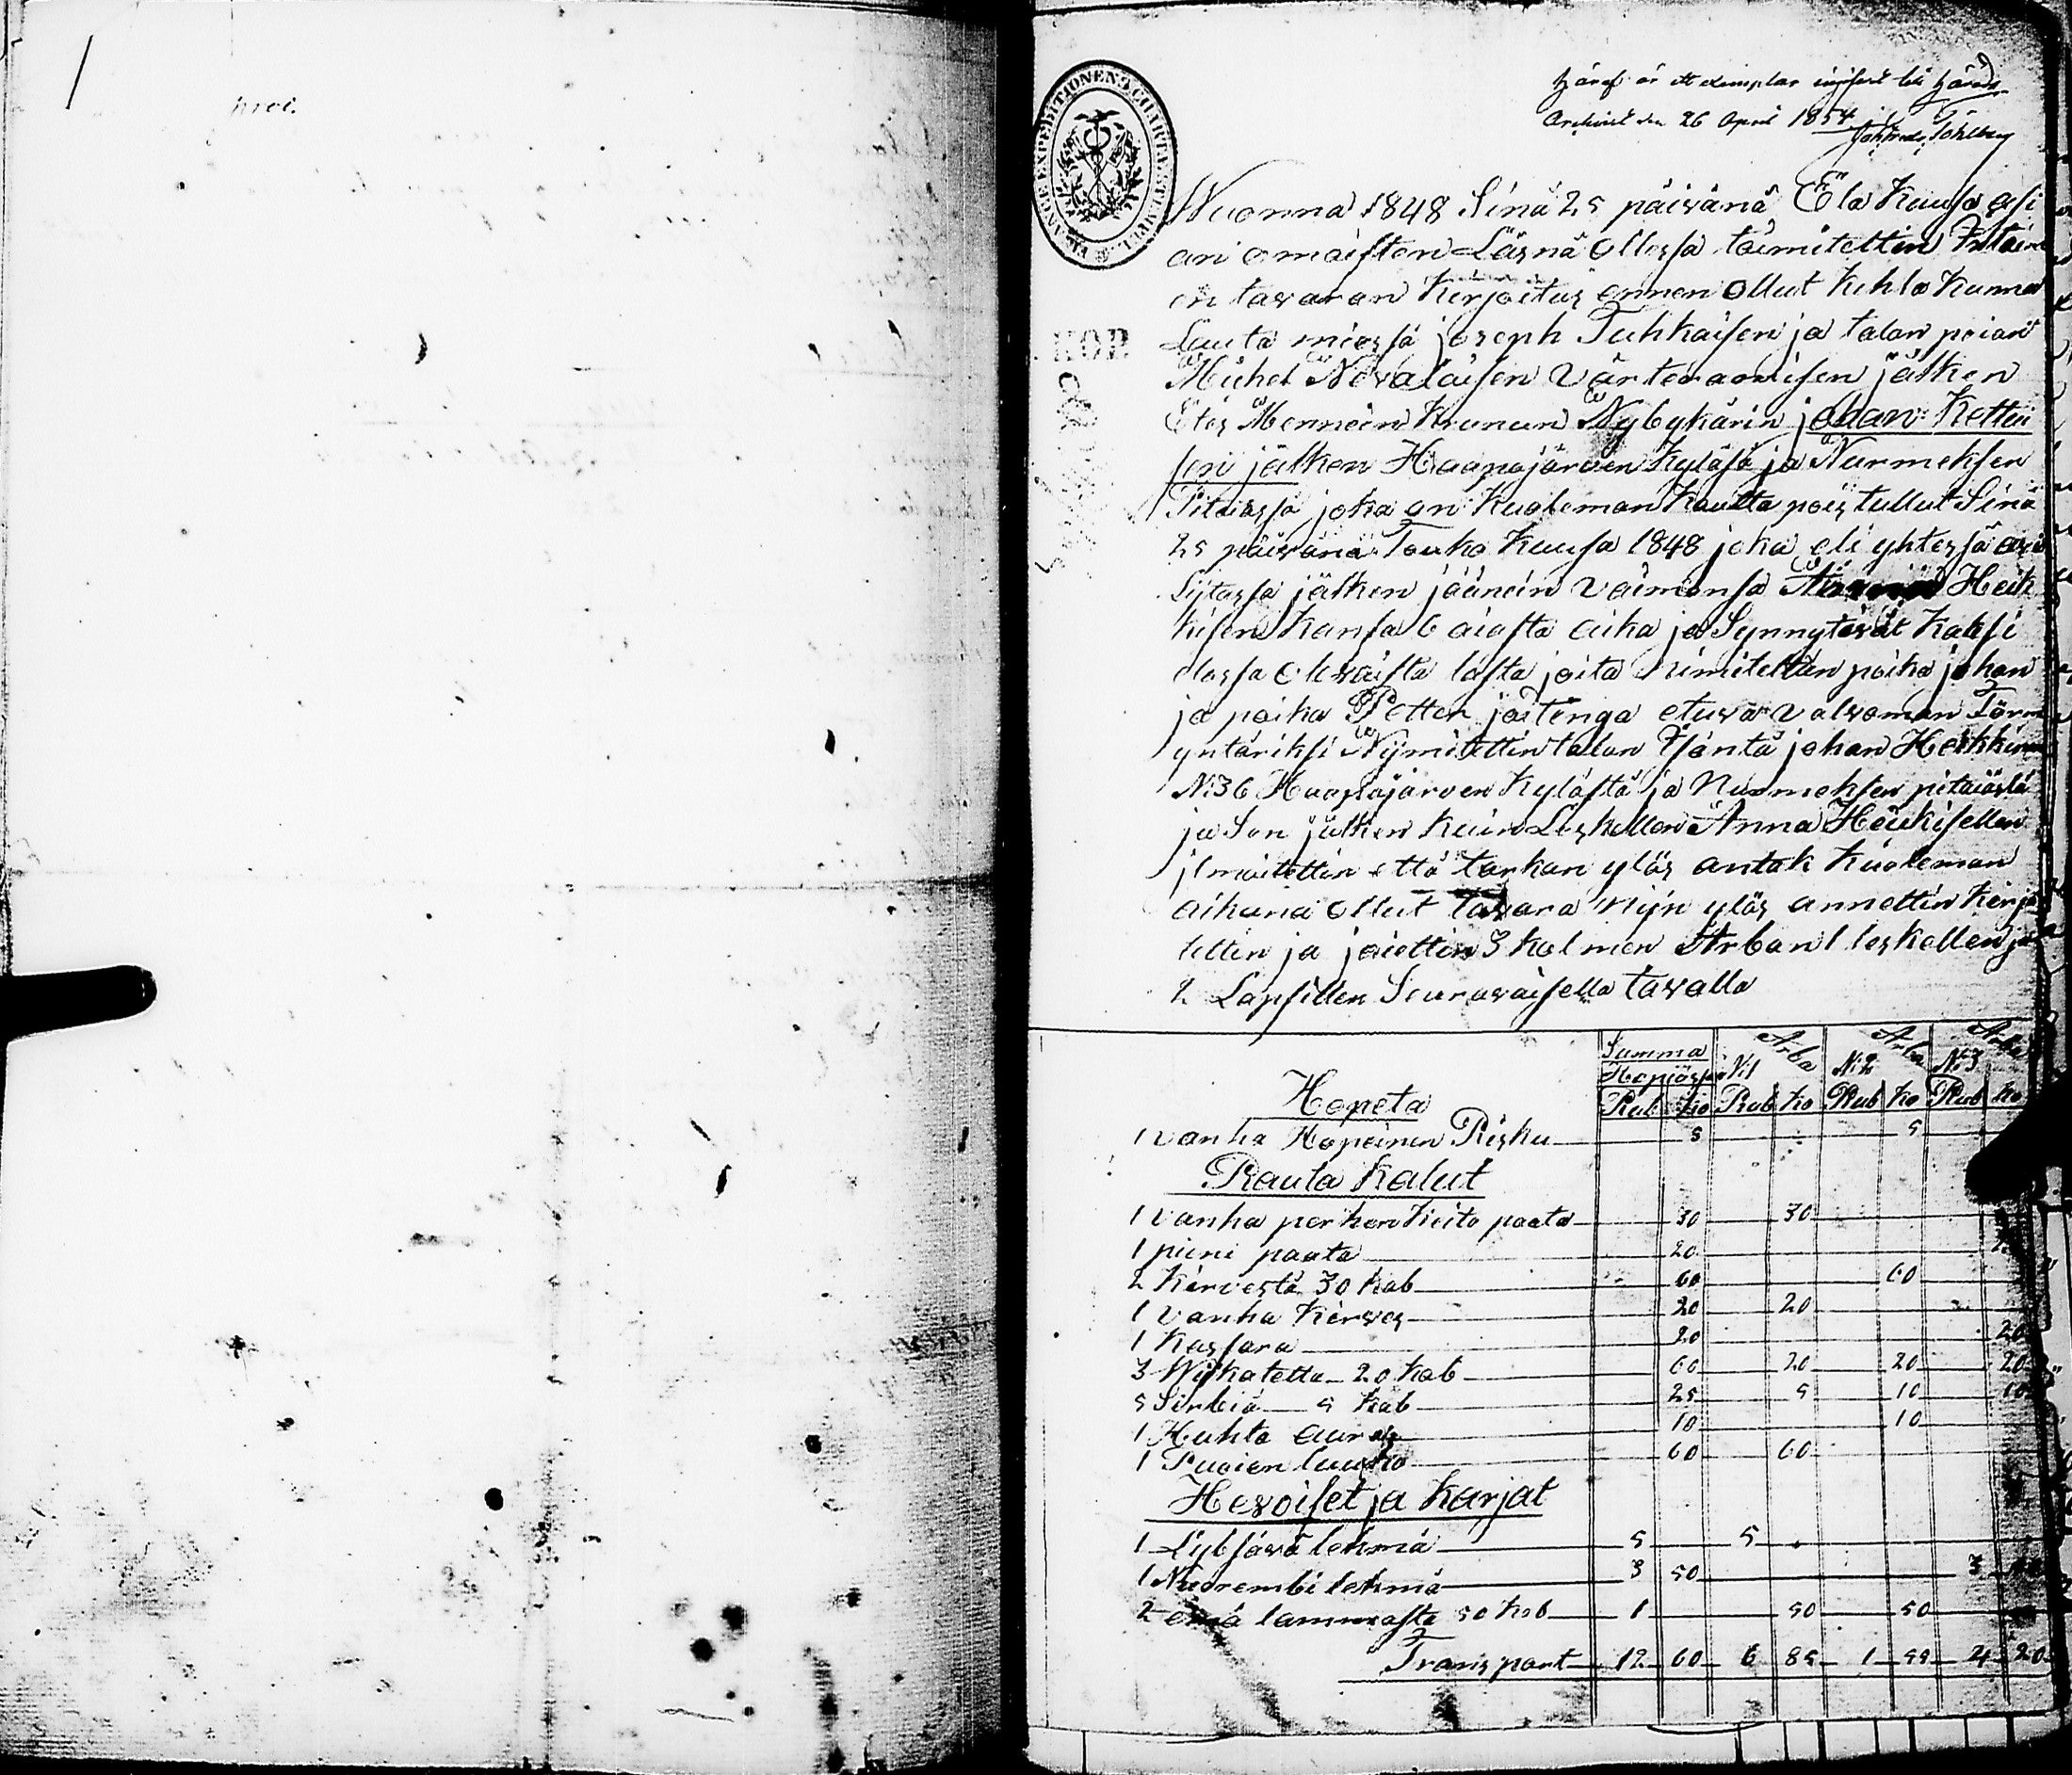 Häraf är ett exemplar ingifvet till Härads
Archivet den 26 April 1854
FINLANDS EXPEDITIONEN CHARTÆ STEMPEL
KOP
Wuonna 1848 Sinä 25 päivänä Elo Kuusa asi
an omaisten Läsnä ollessa toimitettin Irtaim
en tavaran Kirjoitus ennen ollut Kihla Kunna
Lauta miessä joseph Tuhkaisen ja talan poian
Mickel Nevalaisen Värteramisen jälken
Etes Mennein Krunun Nybykärin johan Kettui
sen jälken Haapajärven Kyläsä ja Nurmeksen
Pitäiässä joka on Kuoleman Kautta pois tullut Sinä
25 päivänä Touko Kuusa 1848 joka eli yhtessä avi
Sijtassa jälken jäänein Vaimonsa Anna Heik
kisen Kansa 6 aiasta aika ja Synnytivät Kaksi
elossa olevaista lasta joita Nimitettin poika johan
ja poika Petter joitenga etuva Valvoman Förm
yntäriksi Nijmitettin talon Isäntä johan Heikkinen
N:36 Haapajärven Kylästä ja Nurmeksen pitäiästä
ja Sen jälken Kuin Leskellen Anna Heikisellen
jlmoitettin että tarkan ylös antak Kuoleman
aikana ollut tavara Nijn ylös annettin Kirjo
tettin ja jaiettin 3 Kolmen Arban 1 leskellen ja
2 Lapsillen Seuravaisella tavalla
Summa Hopiässa Arba N:1 Arba N:2 Arba N:3
Hopeta Rub ko Rub ko Rub ko Rub ko
1 Vanha Hopeinen Risku 5 5
Rauta Kalut
1 Vanha perhen Keito paata 30 30
1 pieni paata 20
2 Kirvestä 30 kab 60 60
1 Vanha Kirves 20 20
1 Kassara 20 20
3 Wijkatetta 20 kab 60 20 20 20
5 Sirbiä 5 kab 25 5 10 10
1 Huhta aura 10 10
1 Puoien luucko 60 60
Hevoiset ja Karjat
1 Lijbsävä lehmä 5 5
1 Nuorembi lehmä 3 50 3
2 emä lammasta 50 kab 1 50 50
Transport 12 60 6 85 1 55 4 20